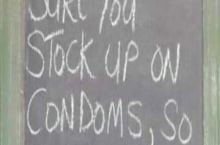 SURE YOU
STOCK UP ON
CONDOMS, SO